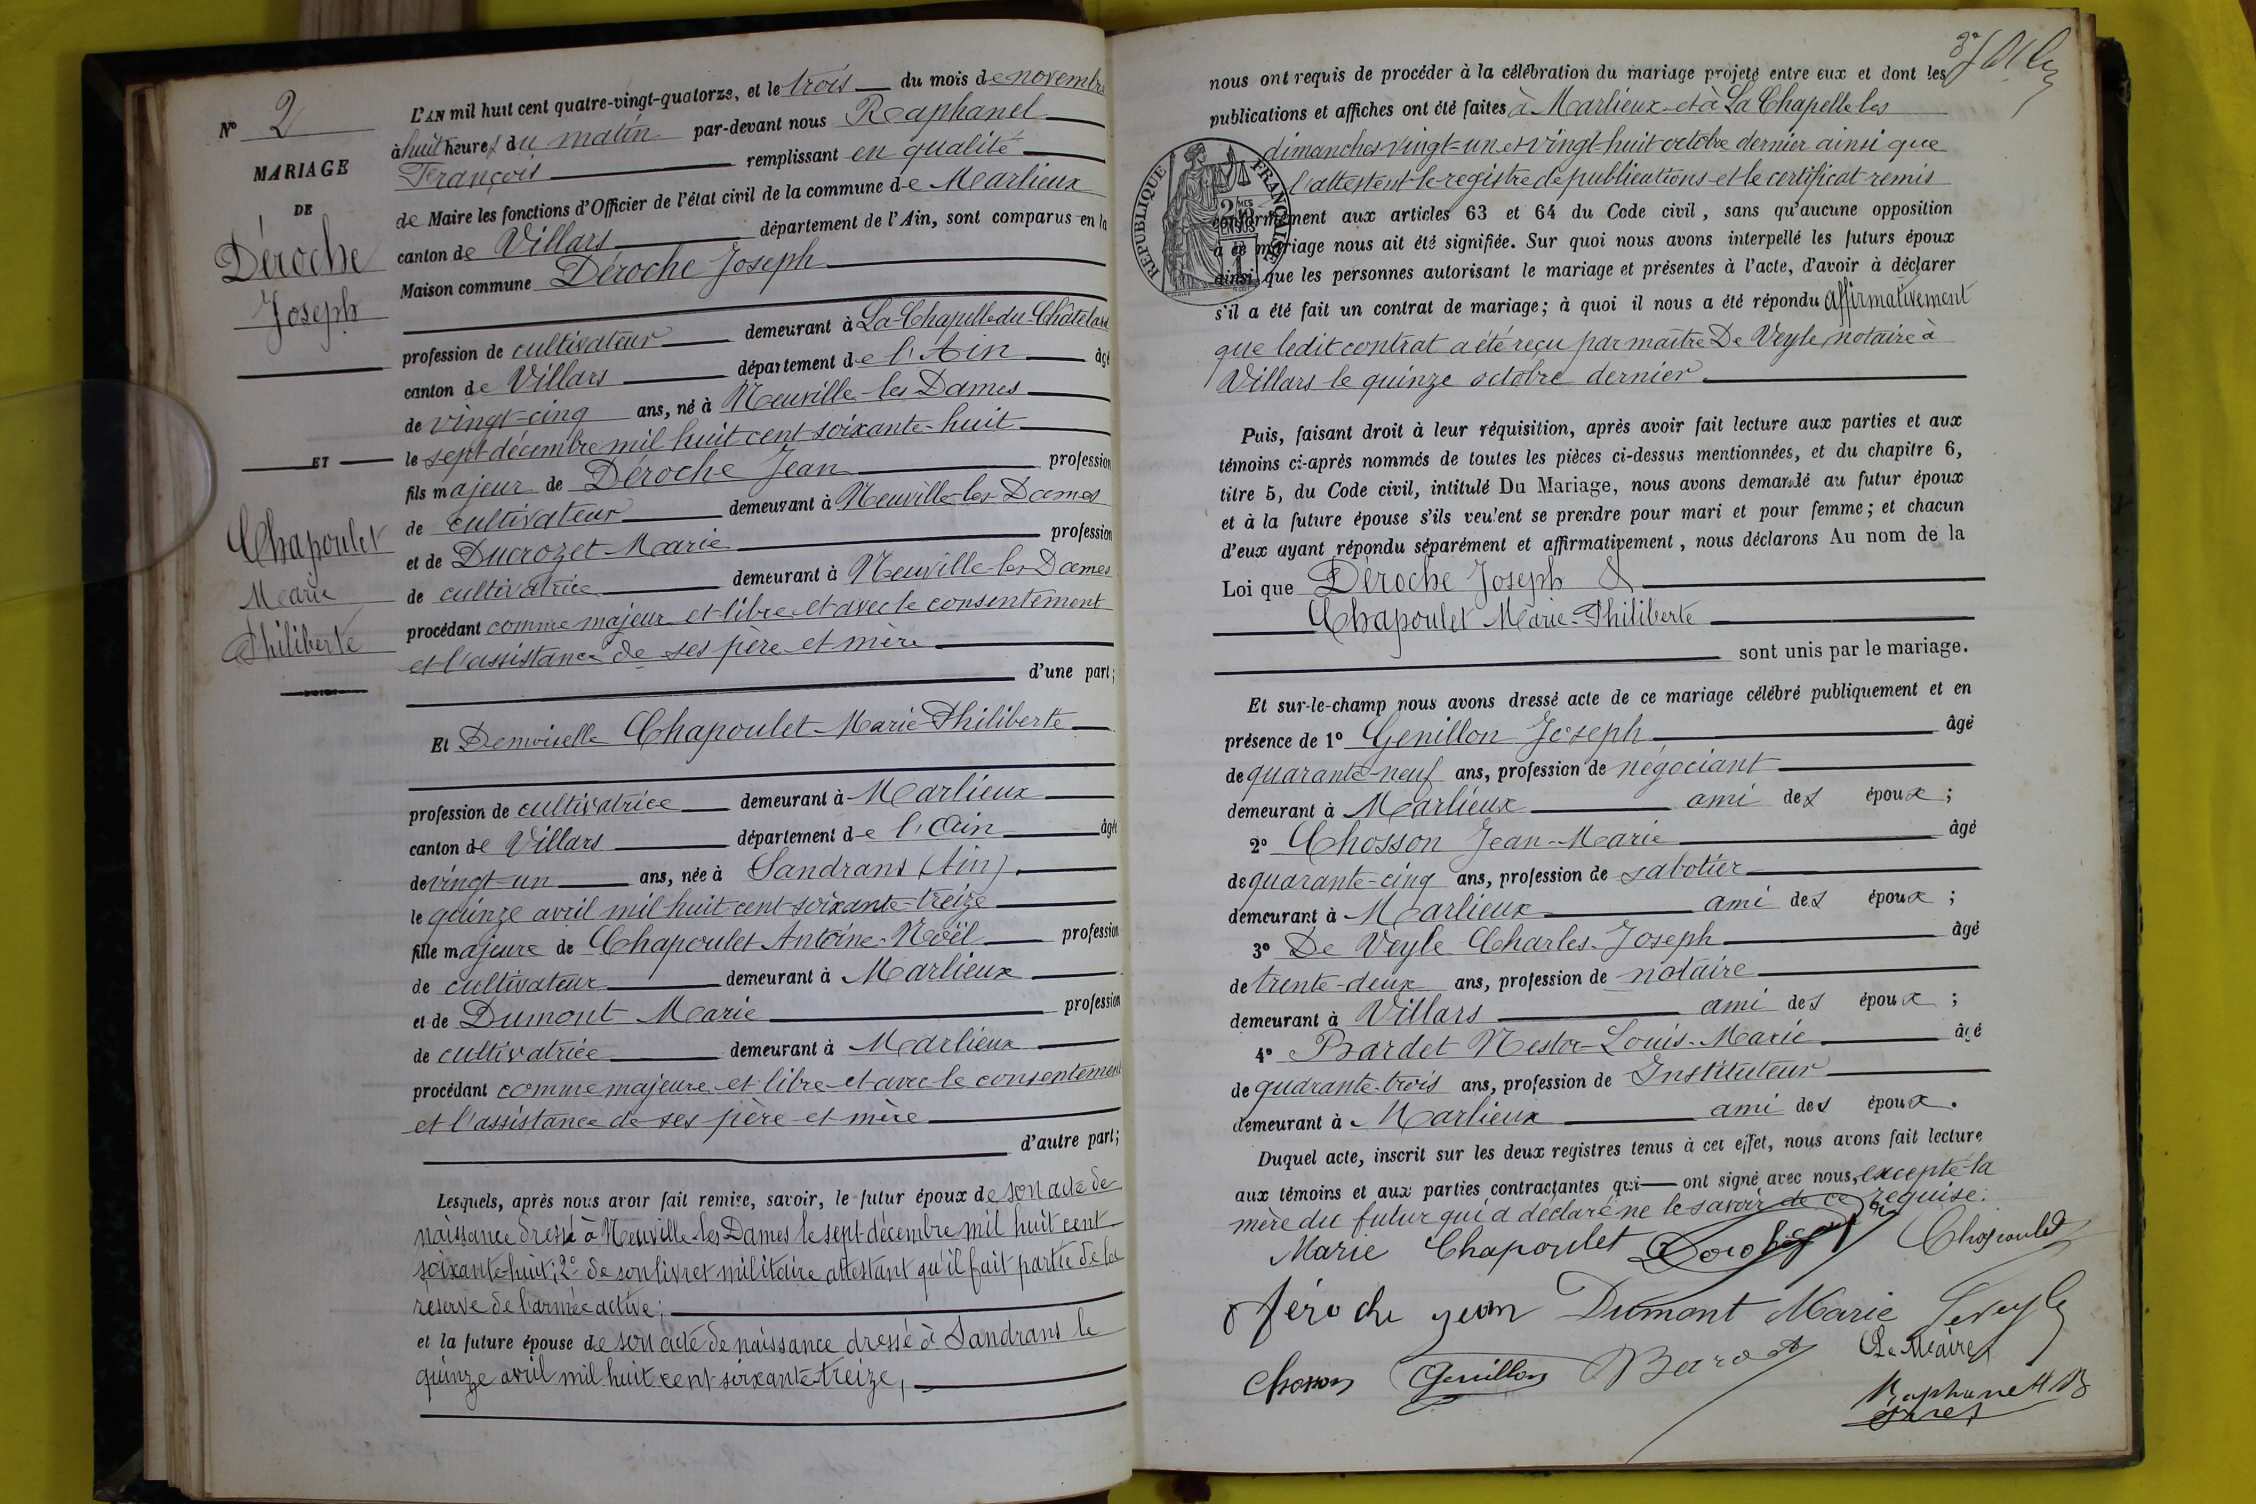 N° 2
MARIAGE
DE
Déroche
Joseph
ET
Chapoulet
Marie
Philiberte
L'AN mil huit cent quatre-vingt-quatorze, et le trois du mois de novembre
à huit heures du matin par-devant nous Raphanel
François remplissant en qualité
de Maire les fonctions d'Officier de l'état civil de la commune de Marlieux
canton de Villars département de l'Ain, sont comparus en la
Maison commune Déroche Joseph
profession de cultivateur demeurant à La Chapelle-du-Châtelard
canton de Villars département de l'Ain âgé
de vingt-cinq ans, né à Neuville-les-Dames
le sept décembre mil huit cent soixante-huit
fils majeur de Déroche Jean profession
de cultivateur demeurant à Neuville-les-Dames
et de Ducrozet Marie profession
de cultivatrice demeurant à Neuville-les-Dames
procédant comme majeur et libre et avec le consentement
et l'assistance de ses père et mère
d'une part;
Et Demoiselle Chapoulet Marie-Philiberte
profession de cultivatrice demeurant à Marlieux
canton de Villars département de l'Ain âgée
de vingt-un ans, née à Sandrans (Ain)
le quinze avril mil huit cent soixante-treize
fille majeure de Chapoulet Antoine-Noël profession
de cultivateur demeurant à Marlieux
et de Dumont Marie profession
de cultivatrice demeurant à Marlieux
procédant comme majeure et libre et avec le consentement
et l'assistance de ses père et mère
d'autre part;
Lesquels, après nous avoir fait remise, savoir, le futur époux de son acte de
naissance dressé à Neuville-les-Dames le sept décembre mil huit cent
soixante-huit; 2° de son livret militaire attestant qu'il fait partie de la
réserve de l'armée active;
et la future épouse de son acte de naissance dressé à Sandrans le
quinze avril mil huit cent soixante-treize,
nous ont requis de procéder à la célébration du mariage projeté entre eux et dont les
publications et affiches ont été faites à Marlieux et à La Chapelle les
dimanches vingt-un et vingt-huit octobre dernier ainsi que
l'attestent le registre de publications et le certificat remis
RÉPUBLIQUE FRANÇAISE
conformément aux articles 63 et 64 du Code civil, sans qu'aucune opposition
à ce mariage nous ait été signifiée. Sur quoi nous avons interpellé les futurs époux
ainsi que les personnes autorisant le mariage et présentes à l'acte, d'avoir à déclarer
s'il a été fait un contrat de mariage; à quoi il nous a été répondu affirmativement
que ledit contrat a été reçu par maître De Veyle, notaire à
Villars le quinze octobre dernier
Puis, faisant droit à leur réquisition, après avoir fait lecture aux parties et aux
témoins ci-après nommés de toutes les pièces ci-dessus mentionnées, et du chapitre 6,
titre 5, du Code civil, intitulé Du Mariage, nous avons demandé au futur époux
et à la future épouse s'ils veulent se prendre pour mari et pour femme; et chacun
d'eux ayant répondu séparément et affirmativement, nous déclarons Au nom de la
Loi que Déroche Joseph &
Chapoulet Marie-Philiberte
sont unis par le mariage.
Et sur-le-champ nous avons dressé acte de ce mariage célébré publiquement et en
présence de 1° Genillon Joseph âgé
de quarante-neuf ans, profession de négociant
demeurant à Marlieux ami des époux;
2° Chosson Jean-Marie âgé
de quarante-cinq ans, profession de sabotier
demeurant à Marlieux ami des époux;
3° De Veyle Charles-Joseph âgé
de trente-deux ans, profession de notaire
demeurant à Villars ami des époux;
4° Bardet Nestor-Louis-Marie âgé
de quarante-trois ans, profession de Instituteur
demeurant à Marlieux ami des époux.
Duquel acte, inscrit sur les deux registres tenus à cet effet, nous avons fait lecture
aux témoins et aux parties contractantes qui ont signé avec nous, excepté la
mère du futur qui a déclaré ne le savoir de ce requise.
Marie Chapoulet Deroche Chapoulet
Déroche Jean Dumont Marie Deveyle
Chosson Genillon Bardet Le Maire
Raphanel